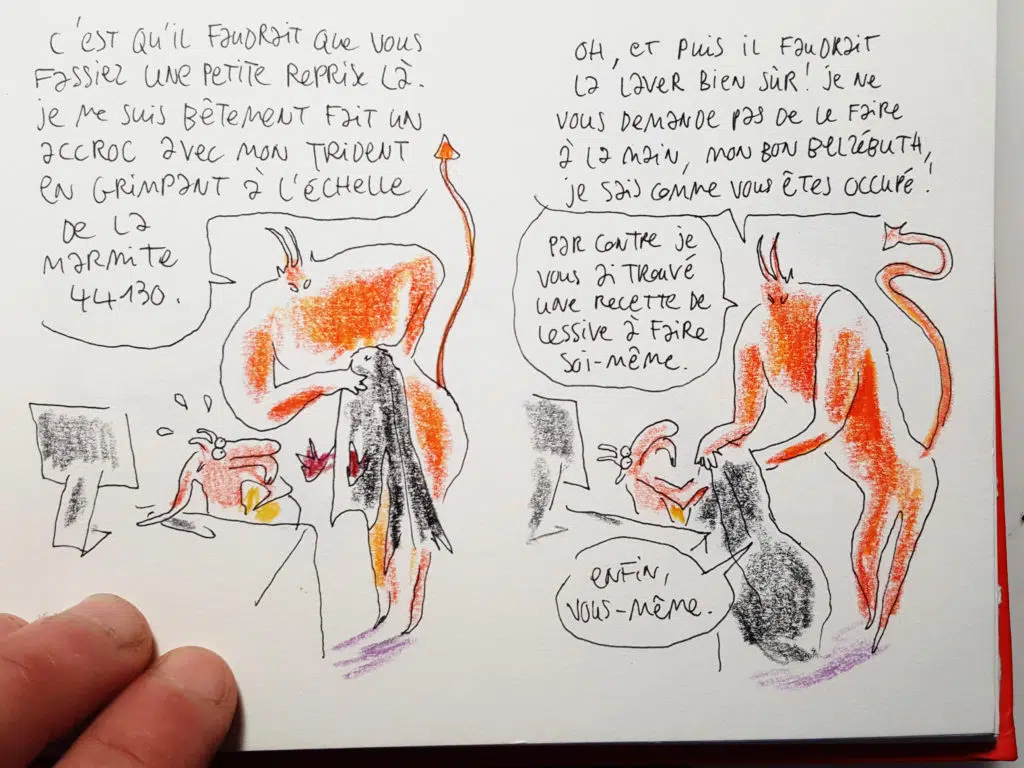 C'EST QU'IL FAUDRAIT QUE VOUS
FASSIEZ UNE PETITE REPRISE LÀ.
JE ME SUIS BÊTEMENT FAIT UN
ACCROC AVEC MON TRIDENT
EN GRIMPANT À L'ÉCHELLE
DE LA
MARMITE
44130.
OH, ET PUIS IL FAUDRAIT
LA LAVER BIEN SÛR! JE NE
VOUS DEMANDE PAS DE LE FAIRE
À LA MAIN, MON BON BELZÉBUTH,
JE SAIS COMME VOUS ÊTES OCCUPÉ!
PAR CONTRE JE
VOUS AI TROUVÉ
UNE RECETTE DE
LESSIVE À FAIRE
SOI-MÊME.
ENFIN,
VOUS-MÊME.